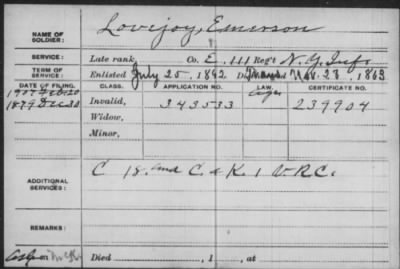 NAME OF SOLDIER: Lovejoy, Emerson
SERVICE: Late rank, Co. E, 111 Reg't N.Y. Inf.
TERM OF SERVICE: Enlisted July 25, 1862 Nov. 23, 1863
DATE OF FILING. CLASS. APPLICATION NO. LAW. CERTIFICATE NO.
1879 Dec 30 Invalid, 343533 239904
Widow,
Minor,
ADDITIONAL SERVICES: C 18. and C. & K. 1 V.R.C.
REMARKS:
Died , 1 , at